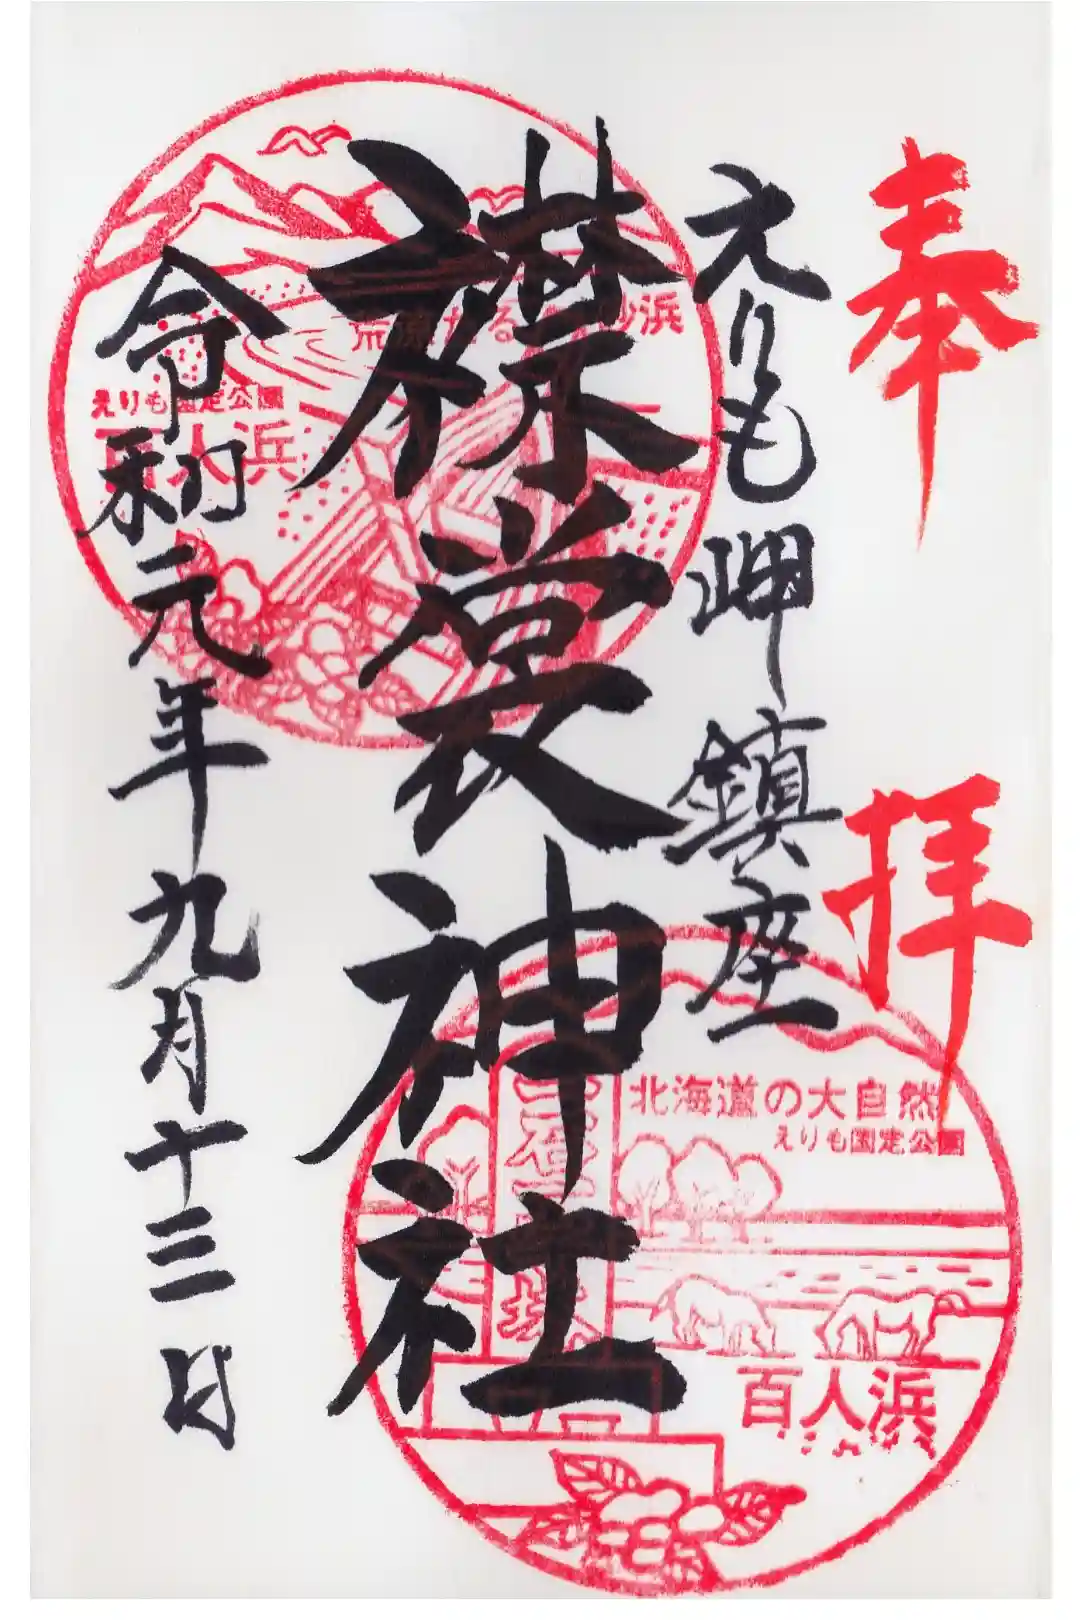 奉拝
えりも岬鎮座
襟裳神社
令和元年九月十三日
えりも国定公園
百人浜
北海道の大自然
えりも国定公園
百人浜